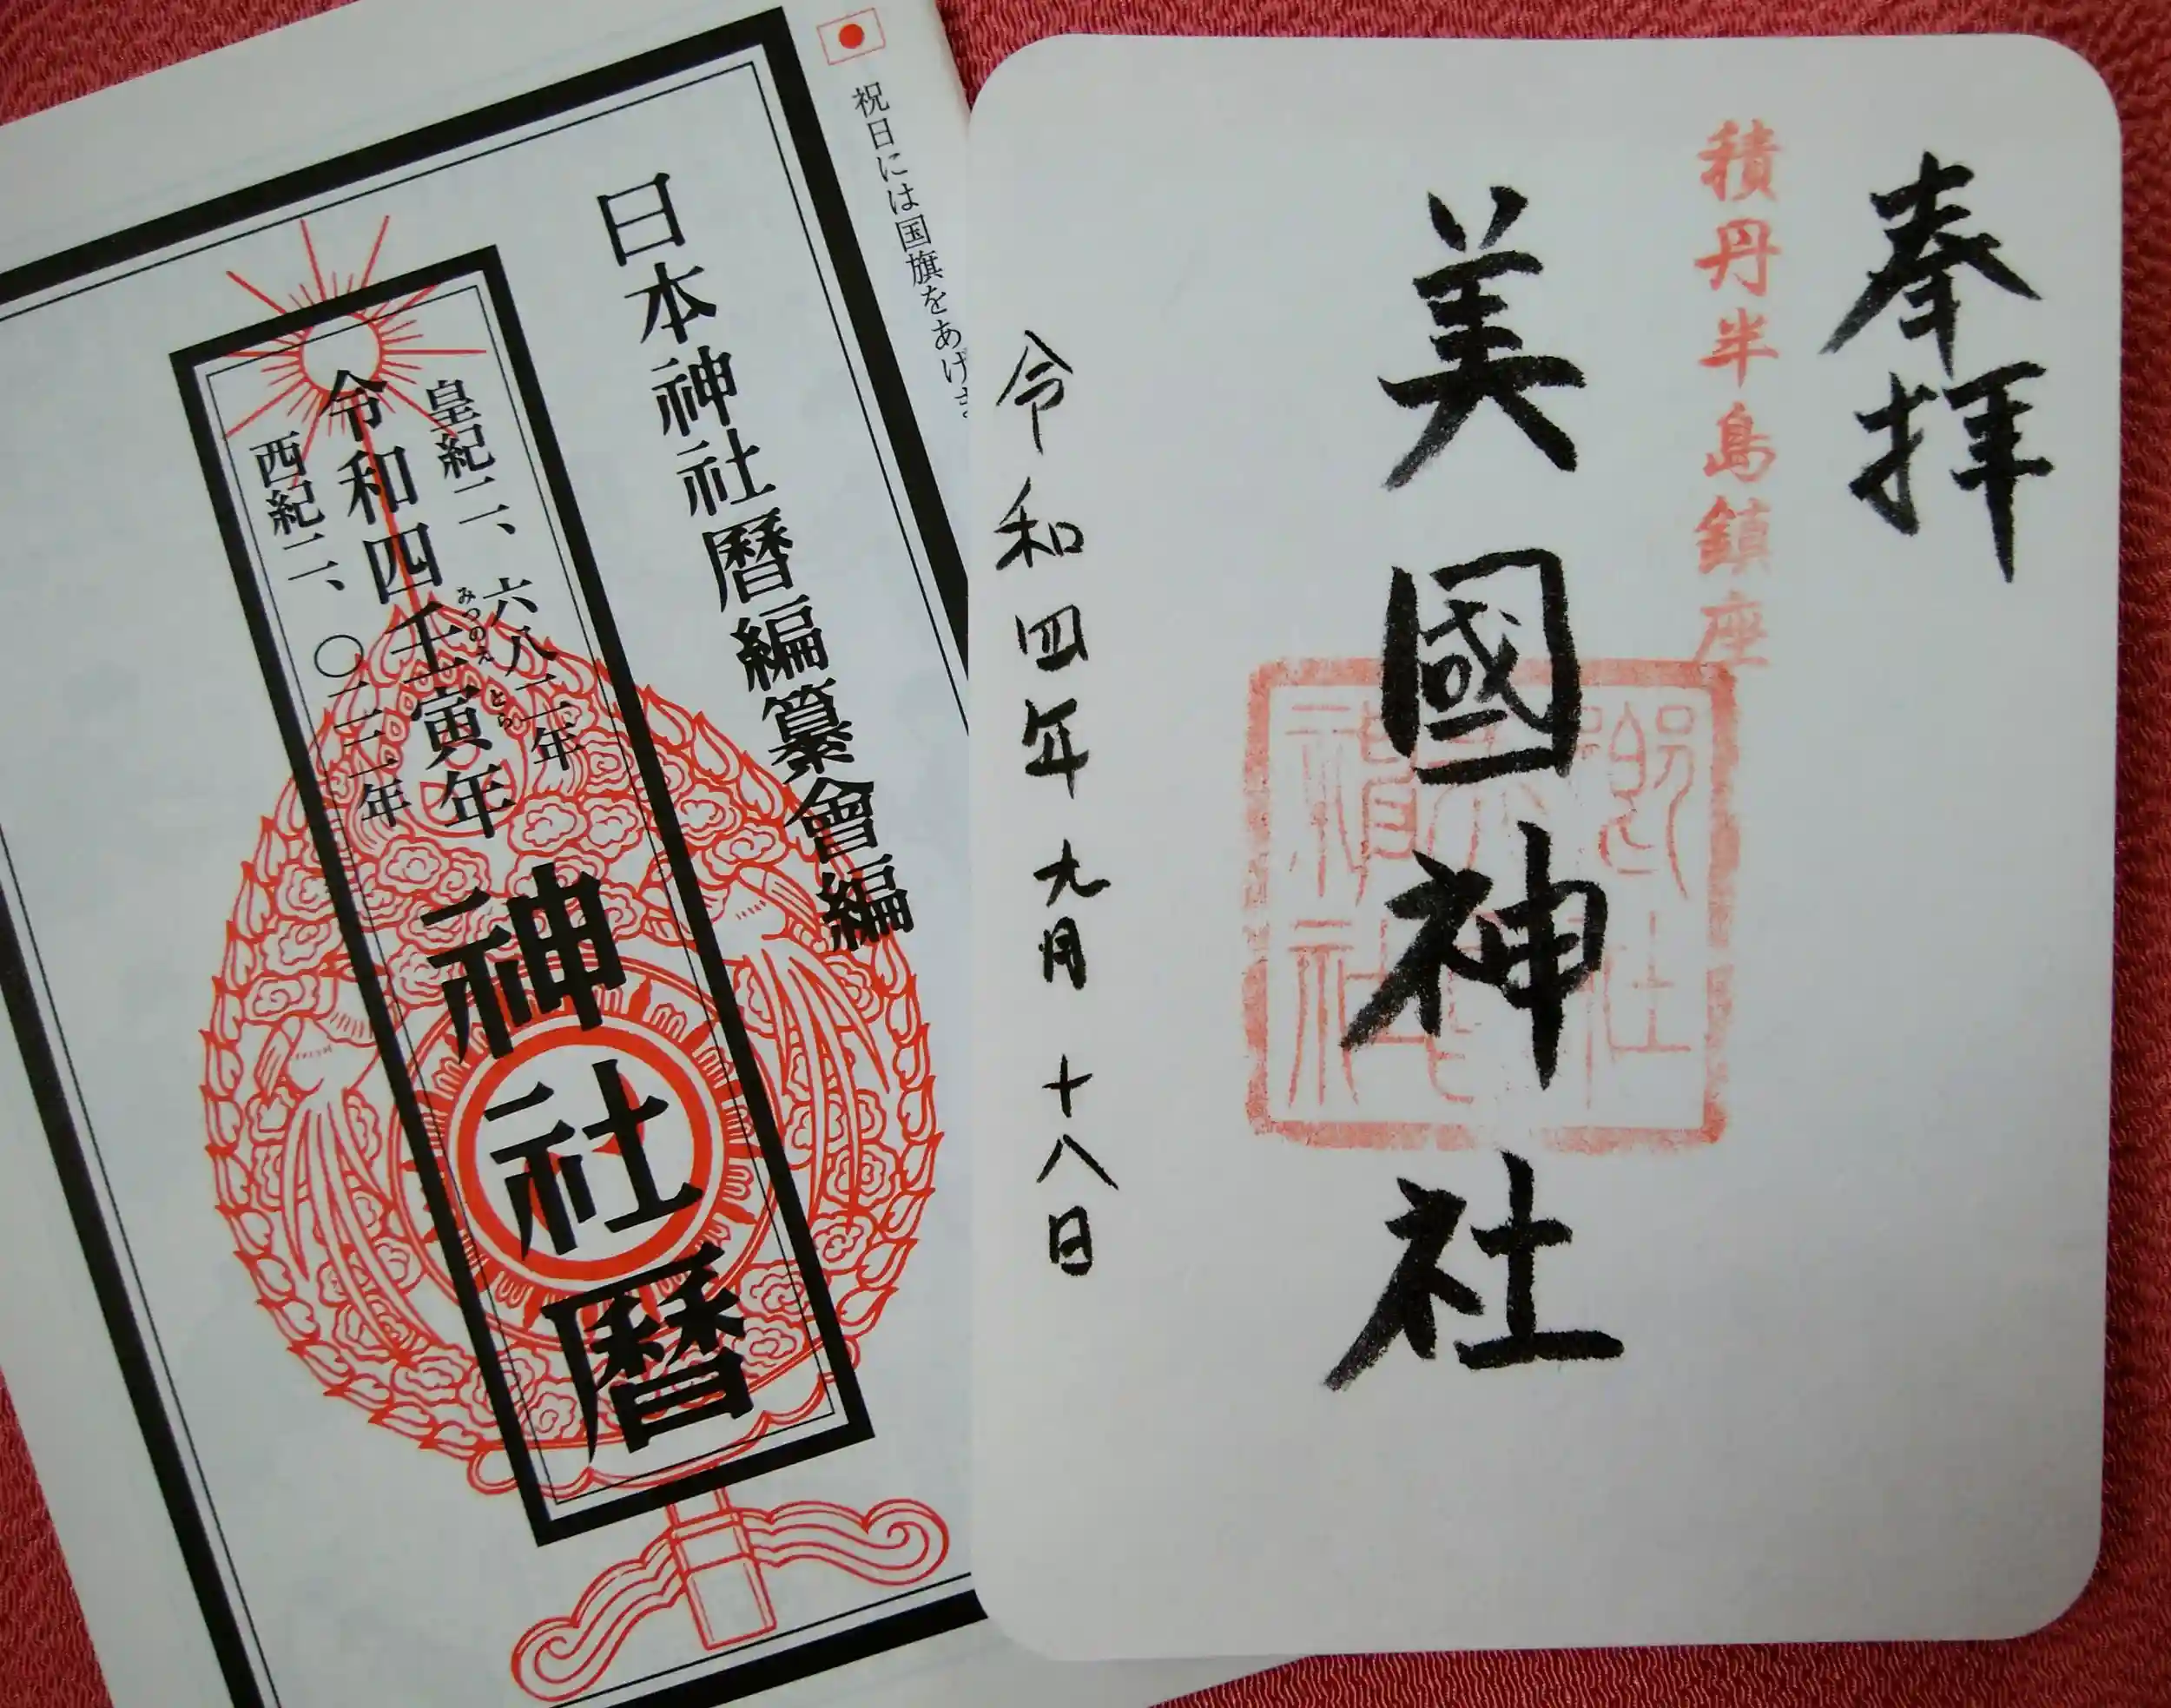 奉拝
積丹半島鎮座
美國神社
令和四年九月十八日
祝日には国旗をあげま
日本神社暦編纂會編
皇紀二、六八二年
令和四壬寅年
みつのえ とら
西紀二、〇二二年
神社暦